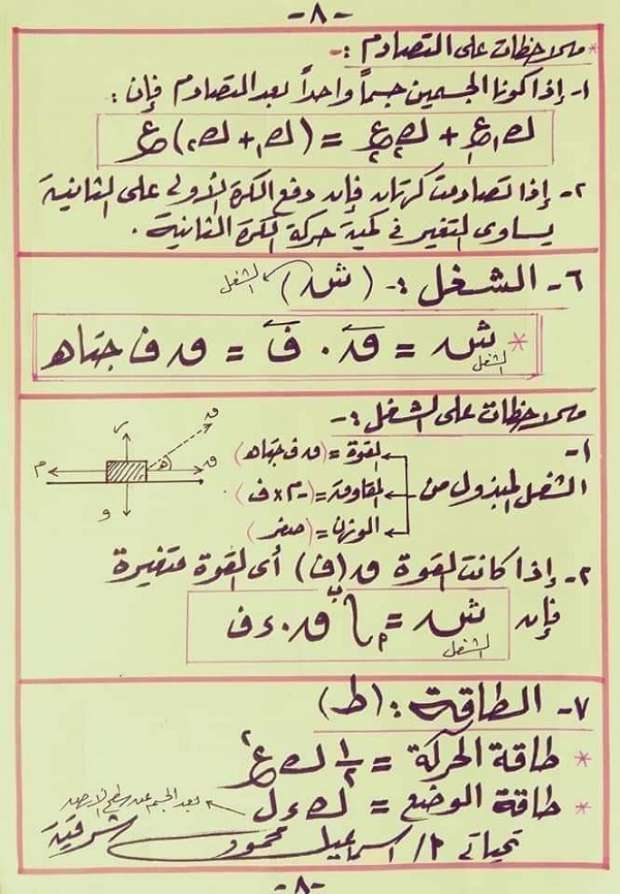 -٨-
* ملاحظات على التصادم :-
١- إذا كونا الجسمين جسماً واحداً بعد التصادم فإن :
ك١ع١ + ك٢ع٢ = (ك١ + ك٢) ع
٢- إذا تصادمت كرتان فإن دفع الكرة الأولى على الثانية
يساوى التغير فى كمية حركة الكرة الثانية .
٦- الشغل :- (ش) الشغل
* ش = ق . ف = ق ف جتا هـ
الشغل
ملاحظات على الشغل :-
١-
الشغل المبذول من
القوة = (ق ف جتا هـ)
المقاومة = (-م × ف)
الوزن = (صفر)
ر
ق
هـ
ق
م
و
٢- إذا كانت القوة ق (ف) أى القوة متغيرة
فإن ش = ∫ ق . ء ف
ب
م
الشغل
٧- الطاقة : (ط)
* طاقة الحركة = ١/٢ ك ع٢
* طاقة الوضع = ك ء ل بعد الجسم عن سطح الأرض
تحياتى م/ اسماعيل محمود شرقية
-٨-